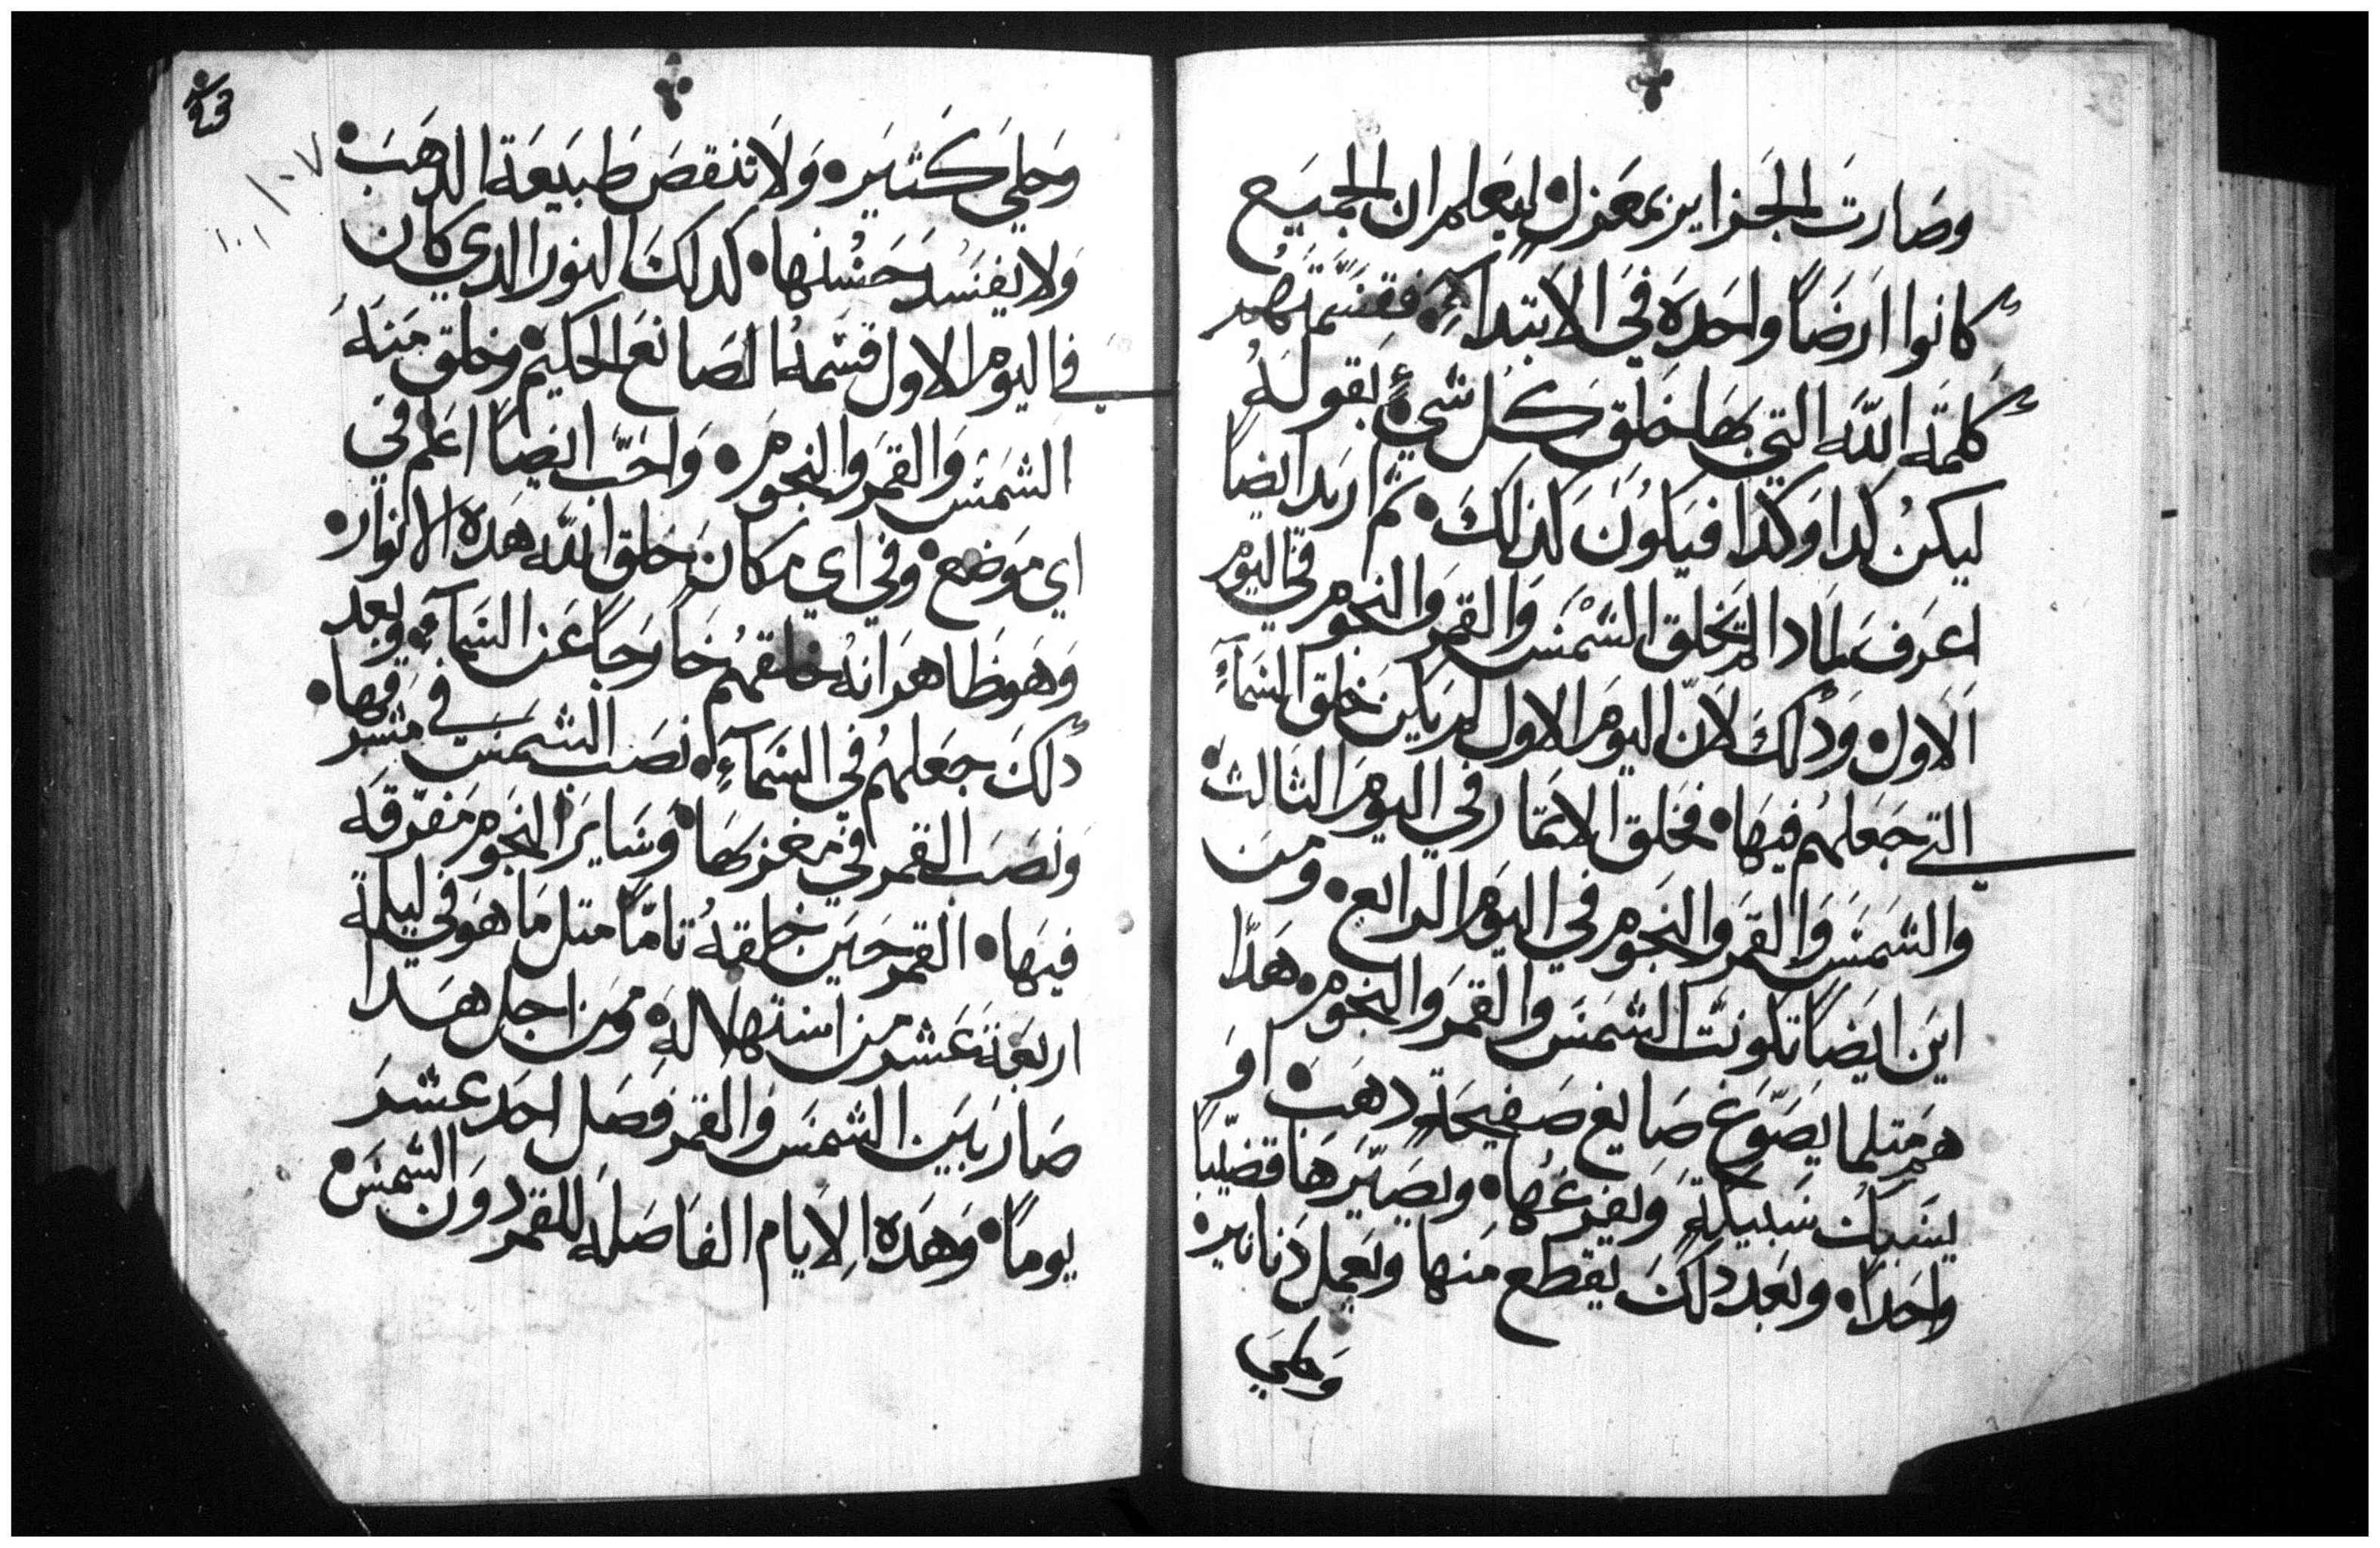 وصارت الجزاير بمعزل ليعلم ان الجميع
كانوا ارضاً واحده في الابتداء • فقسمتهم
كلمة الله التي بها خلق كل شيءٍ بقوله
ليكن كدا وكدا فيكون كذلك • ثم اريد ايضاً
اعرف لمادا لم تخلق الشمس والقمر والنجوم في اليوم
الاول • ودلك لان اليوم الاول لم يكن خلق السماء
التي جعلهم فيها • فخلق الاتمار في اليوم الثالث •
والشمس والقمر والنجوم في اليوم الرابع • ومن
اين ايضاً تكونت الشمس والقمر والنجوم • هدا
هم متلما يصوغ صايغ صفيحة دهب • او
يسبك سبيكة ويفرغها • ويصيرها قضيباً
واحداً • وبعد دلك يقطع منها ويعمل دنانير •
وحلي
23
١٠٧
١٠١
وحلي كتير • ولا تنقص طبيعة الدهب •
ولا يفسد حسنها • كدلك النور الدي كان
في اليوم الاول قسمه الصانع الحكيم وخلق منه
الشمس والقمر والنجوم • واحب ايضاً اعلم في
اي موضع • وفي اي مكان خلق الله هده الانوار •
وهو ظاهر انه خلقهم خارجاً عن السماء • وبعد
دلك جعلهم في السماء • نصب الشمس في مشرقها •
ونصب القمر في مغربها • وساير النجوم مفرقه
فيها • القمر حين خلقه تاماً متل ما هو في ليلة
اربعة عشر من استهلاله • ومن اجل هدا
صار بين الشمس والقمر فصل احد عشر
يوماً • وهده الايام الفاصله للقمر دون الشمس •